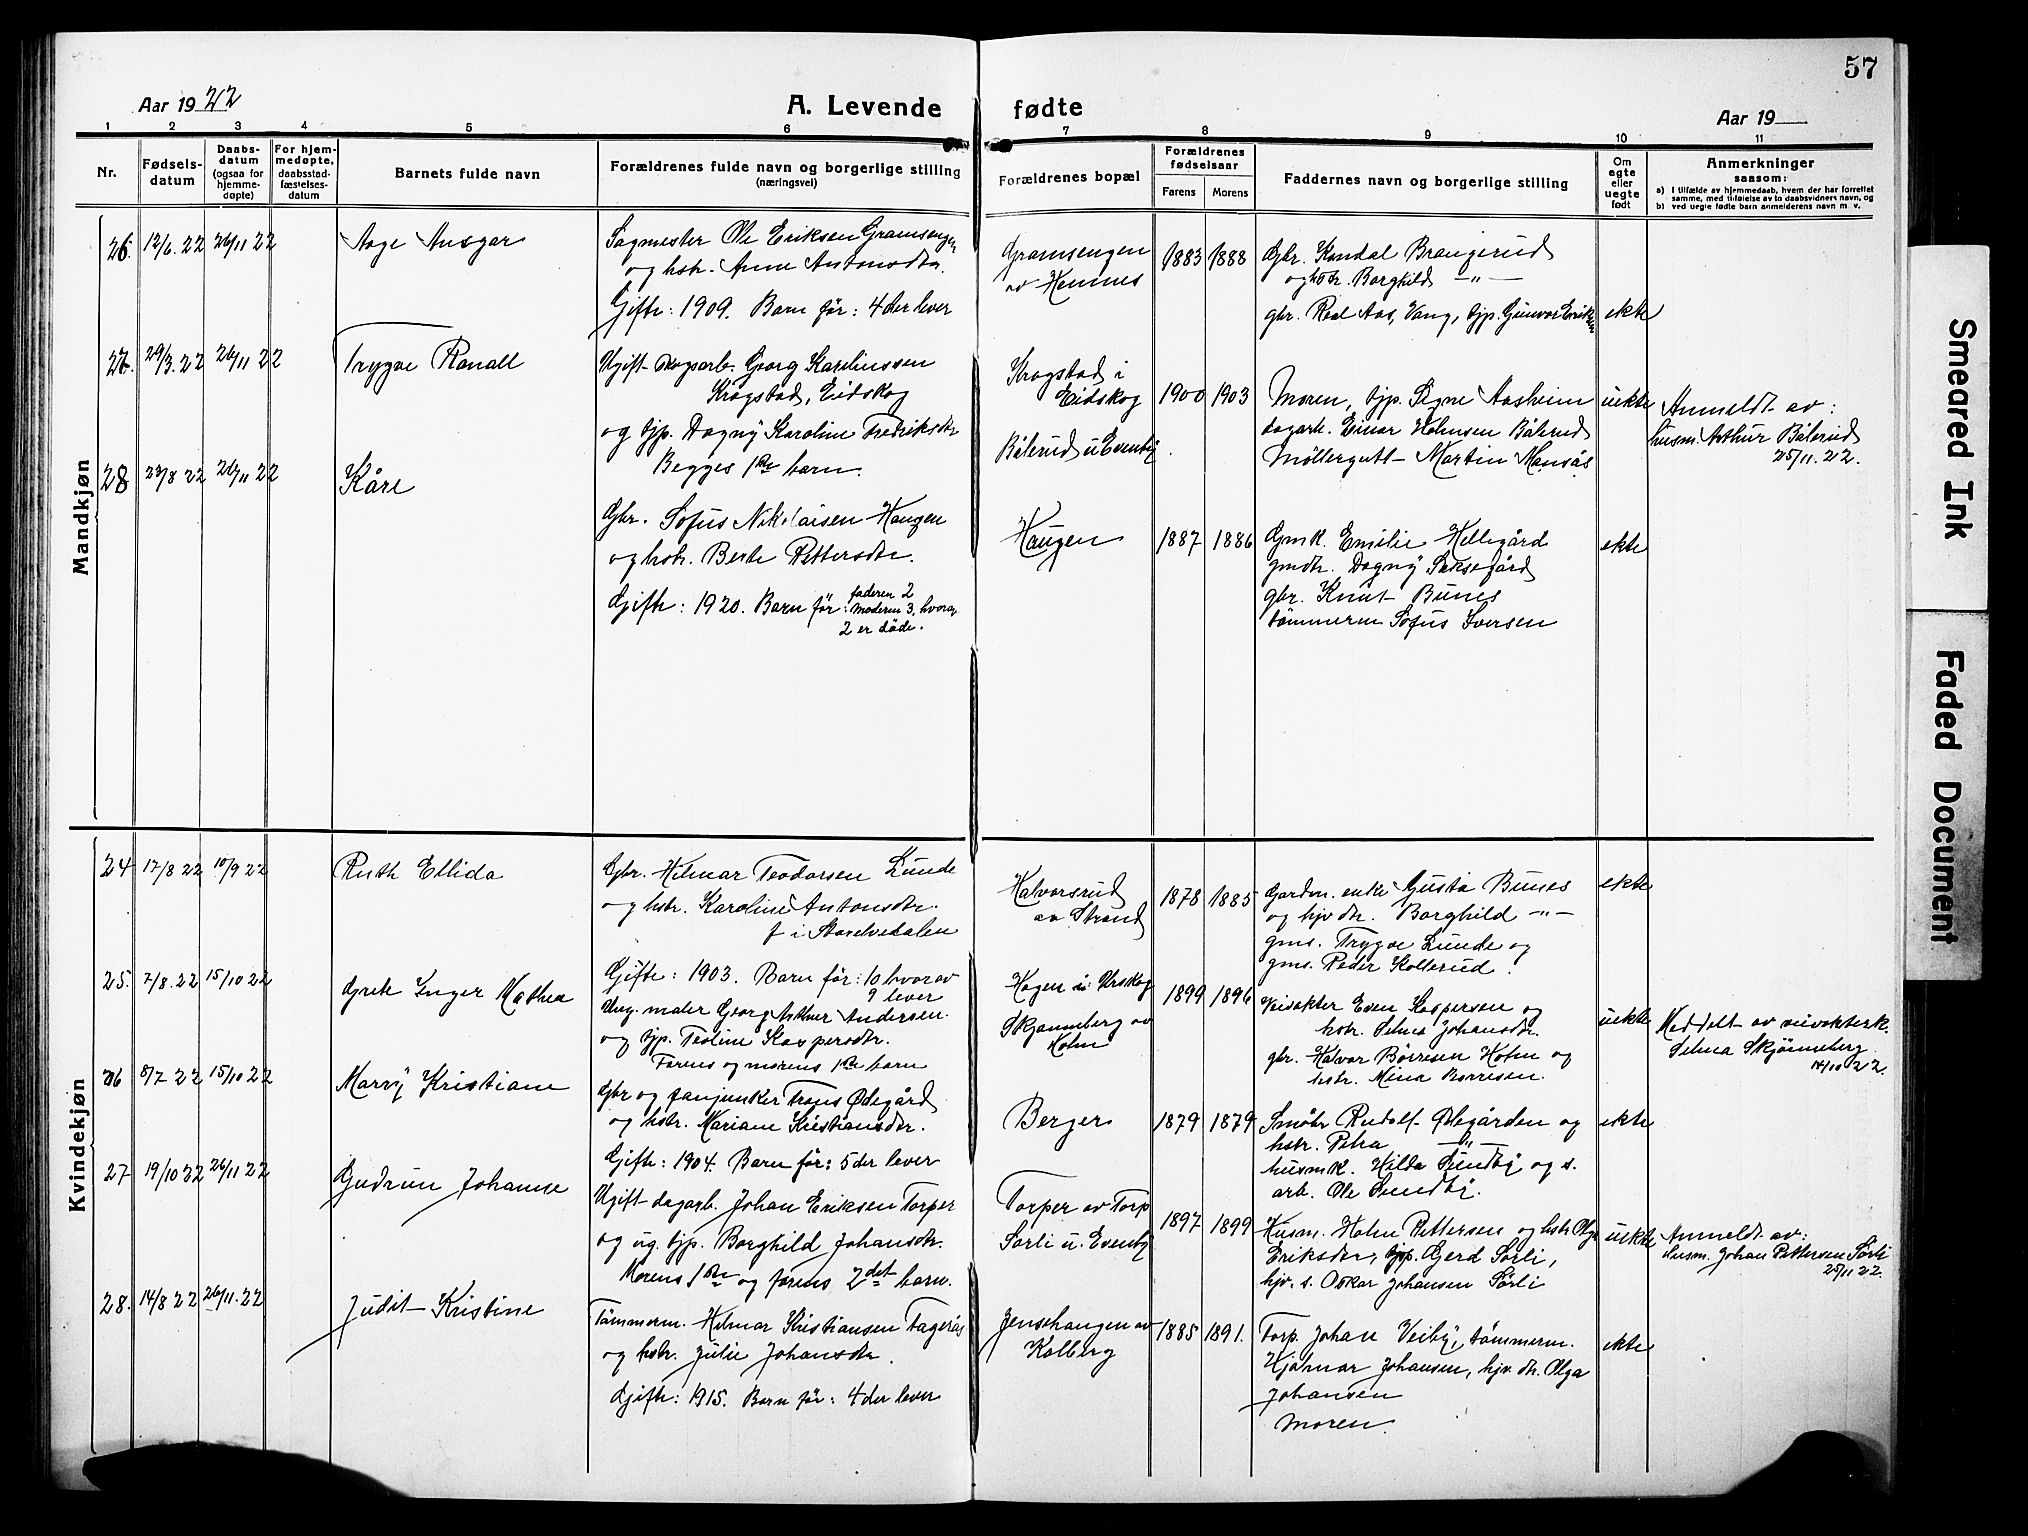 57
Aar 1922
A. Levende fødte
Aar 19
1 2 3 4 5 6 7 8 9 10 11
Nr.
Fødsels-
datum
Daabs-
datum
(ogsaa for
hjemme-
døpte)
For hjem-
medøpte,
daabsstad-
fæstelses-
datum
Barnets fulde navn
Forældrenes fulde navn og borgerlige stilling
(næringsvei)
Forældrenes bopæl
Forældrenes
fødselsaar
Farens
Morens
Faddernes navn og borgerlige stilling
Om
egte
eller
uegte
født
Anmerkninger
saasom:
a) I tilfælde av hjemmedaab, hvem der har forrettet
samme, med tilføielse av to daabsvidners navn, og
b) ved uegte fødte barn anmelderens navn m. v.
Mandkjøn
26. 12/6 22 26/11 22
Aage Ansgar
Sagmester Ole Eriksen Gramsengen
og hstr. Anne Antonsdtr.
Gifte: 1909. Barn før: 4 der lever
Gramsengen
av Hennes
1883 1888
Gbr. Kondal Brangerud
og hstr. Borghild -"-
gbr. Aas, Vang, tjp. Gunvor Eriksen
ekte
27. 29/3 22 26/11 22
Trygve Ronall
Ugift skogsarb. Georg Karelinssen
Krogstad, Eidskog
og tjp. Dagny Karoline Fredriksdtr
Begges 1ste barn.
Krogstad i
Eidskog
Bålerud u Evenby.
1900 1903
Moren, tjp. Signe Aasheim
dagarb. Einar Holmsen Bålerud
Møllergutt Martin Monsås
uekte
Anmeldt av:
husm. Arthur Bålerud
25/11.22.
28 23/8 22 26/11 22
Kåre
Gbr. Sofus Nikolaisen Haugen
og hstr. Berte Pettersdtr.
Gifte: 1920. Barn før: faderen 2
moderen 3, hvorav
2 er døde.
Haugen
1887 1886
Gmk. Emilie Hellegård
gmdtr. Dagny Saksegård
gbr. Knut Bunes
tømmerm Sofus Iversen
ekte
Kvindekjøn
24 17/8 22 10/9 22
Ruth Ellida
Gbr. Hilmar Teodorsen Lunde
og hstr. Karoline Antonsdtr.
f i Storelvedalen
Gifte: 1903. Barn før: 10 hvorav
9 lever
Halvorsrud
av Strand
1878 1885
Garden. enke Gusta Bunes
og hjv dtr. Borghild -"-
gms. Trygve Lunde og
gms. Peder Kollerud.
ekte
25. 7/8. 22 15/10 22
Grete Inger Mathea
Ung. maler Georg Arthur Andersen.
og tjp. Teoline Kaspersdtr.
Farens og morens 1ste barn
Hagen i Urskog
Skjønneberg av
Holm
1899 1896
Veivokter Even Kaspersen og
hstr. Selma Johansdtr.
gbr. Halvor Børresen Holm og
hstr. Mina Børresen.
uekte
Meddelt av veivokterk.
Selma Skjønneberg.
14/10 22.
26 8/7 22 15/10 22
Marry Kristiane
Gbr og fanjunker Frans Ødegård
og hstr. Mariane Kristiansdtr.
Gifte: 1904. Barn før: 5 der lever
Berger
1879 1879
Småbr Rudolf Ødegården og
hstr. Petra -"-
husmk. Hilda Sundby og s.
arb. Ole Sundby.
ekte
27 19/10 22 26/11 22
Gudrun Johanne
Ugift dagarb. Johan Eriksen Torper
og ug. tjp. Borghild Johansdtr.
Morens 1ste og farens 2det barn.
Torper av Torp
Sørli u. Evenby
1897 1899
Husm. Holm Pettersen og hstr Olga
Eriksdtr, tjp. Gjerd Sørli,
hjv. s. Oskar Johansen Sørli
uekte
Anmeldt av:
husm. Johan Pettersen Sørli
25/11 22.
28. 14/8 22 26/11.22
Judit Kristine
Tømmerm. Hilmar Kristiansen Fagerås
og hstr. Julie Johansdtr.
Gifte: 1915. Barn før: 4 der lever
Jenshaugen av
Kolberg
1885 1891.
Torp. Johan Veiby, tømmerm.
Hjalmar Johansen, hjv. dtr. Olga
Johansen
Moren.
ekte
Smeared Ink
Faded Document